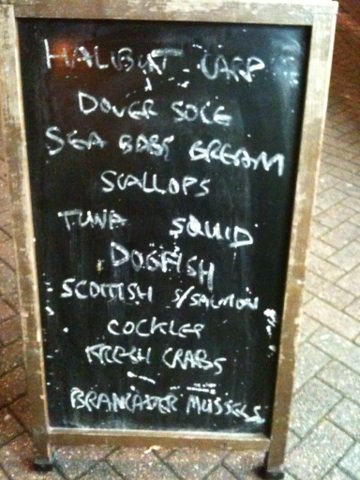 HALIBUT CARP
DOVER SOLE
SEA BASS BREAM
SCALLOPS
TUNA SQUID
DOGFISH
SCOTTISH S/SALMON
COCKLES
FRESH CRABS
BRANCASTER MUSSELS